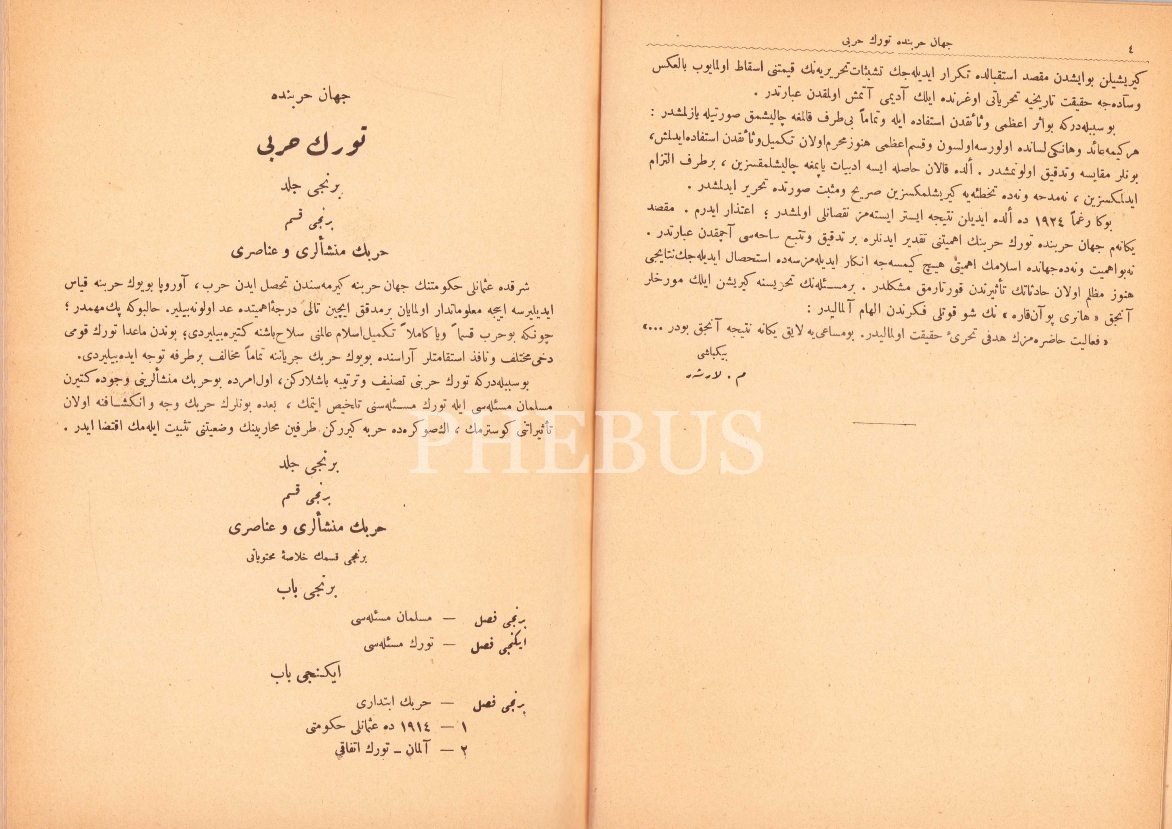 ٤
جهان حربنده تورك حربی
كیریشیلن بوایشدن مقصد استقبالده تكرار ایدیله‌جك تشبثات تحریریه‌نك قیمتنی اسقاط اولمایوب بالعكس
وساده‌جه حقیقت تاریخیه تحریاتی اوغرنده ایلك آدیمی آتمش اولمقدن عبارتدر .
بو سبیله‌دركه بواثر اعظمی وثائقدن استفاده ایله وتماماً بی‌طرف قالمغه چالیشمق صورتیله یازلمشدر :
هركیمه عائد وهانكی لسانده اولورسه اولسون وقسم اعظمی هنوز محرم اولان تكمیل وثائقدن استفاده ایدلمش،
بونلر مقایسه وتدقیق اولونمشدر . ألده قالان حاصله ایسه ادبیات یایمغه چالیشلمقسزین ، برطرف التزام
ایدلمكسزین ، نه‌مدحه ونه‌ده تخطئه‌یه كیریشلمكسزین صریح ومثبت صورتده تحریر ایدلمشدر .
بوكا رغماً ١٩٢٤ ده ألده ایدیلن نتیجه ایستر ایسته‌مز نقصانلی اولمشدر ؛ اعتذار ایدرم . مقصد
یكانه‌م جهان حربنده تورك حربنك اهمیتنی تقدیر ایدنلره بر تدقیق وتتبع ساحه‌سی آچمقدن عبارتدر .
نه‌بواهمیت ونه‌ده جهانده اسلامك اهمیتی هیچ كیمسه‌جه انكار ایدیله‌مزسه‌ده استحصال ایدیله‌جك نتایجی
هنوز مظلم اولان حادثاتك تأثیرندن قورتارمق مشكلدر . برمسئله‌نك تحریسنه كیریشن ایلك مورخلر
آنجق « هانری پوآن‌قاره » نك شو قوتلی فكرندن الهام آلمالیدر :
« فعالیت حاضره‌مزك هدفی تحریٔ حقیقت اولمالیدر. بومساعی‌یه لایق یكانه نتیجه آنجق بودر ...»
بیكباشی
م . لارشر
جهان حربنده
تورك حربی
برنجی جلد
برنجی قسم
حربك منشألری و عناصری
شرقده عثمانلی حكومتنك جهان حربنه كیرمه‌سندن تحصل ایدن حرب ، آوروپا بویوك حربنه قیاس
ایدیلیرسه اییجه معلوماتدار اولمایان برمدقق ایچین تالی درجهٔ اهمیتده عد اولونه‌بیلیر. حالبوكه پك مهمدر؛
چونكه بوحرب قسماً ویا كاملاً تكمیل اسلام عالمنی سلاح‌باشنه كتیره‌بیلیردی؛ بوندن ماعدا تورك قومی
دخی مختلف ونافذ استقامتلر آراسنده بویوك حربك جریاننه تماماً مخالف برطرفه توجه ایده‌بیلیردی.
بوسبیله‌دركه تورك حربنی تصنیف وترتیبه باشلاركن، اول‌امرده بوحربك منشألرینی وجوده كتیرن
مسلمان مسئله‌سی ایله تورك مسـئله‌سنی تلخیص ایتمك ، بعده بونلرك حربك وجه وانكشـافنه اولان
تأثیراتنی كوسترمك ، اك‌صوكره‌ده حربه كیرركن طرفین محاربینك وضعیتنی تثبیت ایله‌مك اقتضا ایدر .
برنجی جلد
برنجی قسم
حربك منشألری و عناصری
برنجی قسمك خلاصهٔ محتویاتی
برنجی باب
برنجی فصل — مسلمان مسئله‌سی
ایكنجی فصل — تورك مسئله‌سی
ایكـنجی باب
برنجی فصل — حربك ابتداری
١ — ١٩١٤ ده عثمانلی حكومتی
٢ — آلمان ـ تورك اتفاقی
PHEBUS